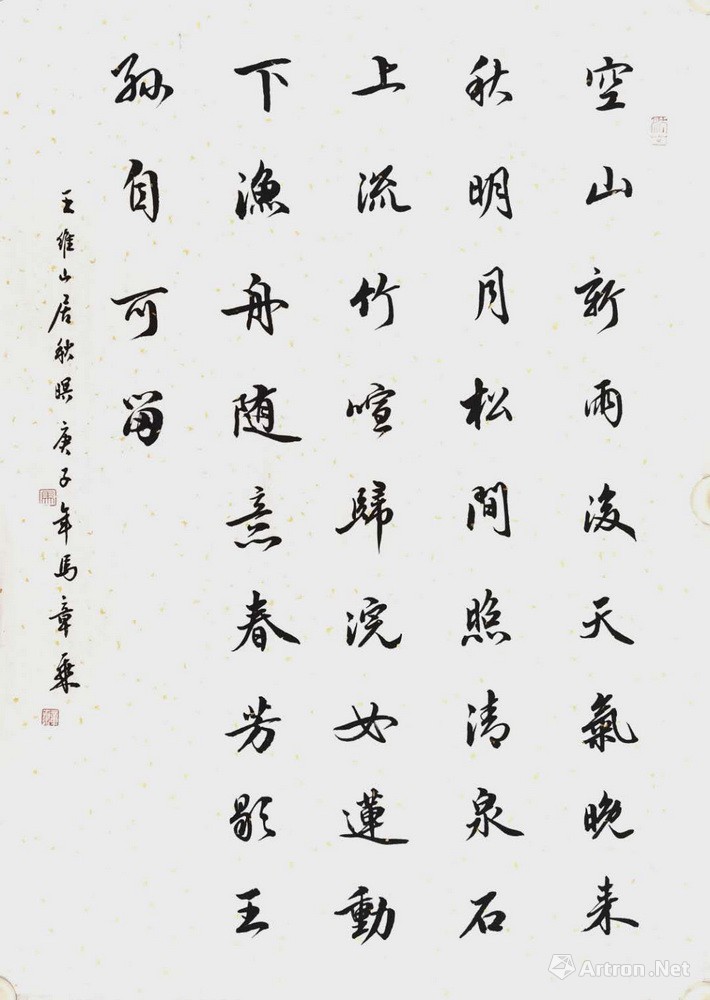 空山新雨後天氣晚来
秋明月松間照清泉石
上流竹喧歸浣女蓮動
下漁舟随意春芳歇王
孫自可留
王維山居秋暝庚子年馬章乗
Artron.Net